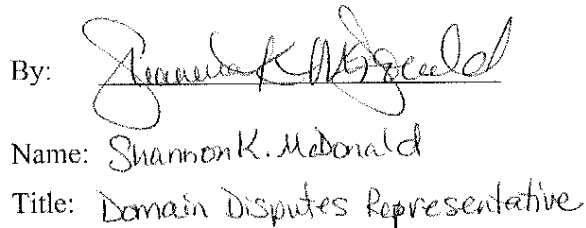 By: Shannon K McDonald
Name: Shannon K. McDonald
Title: Domain Disputes Representative